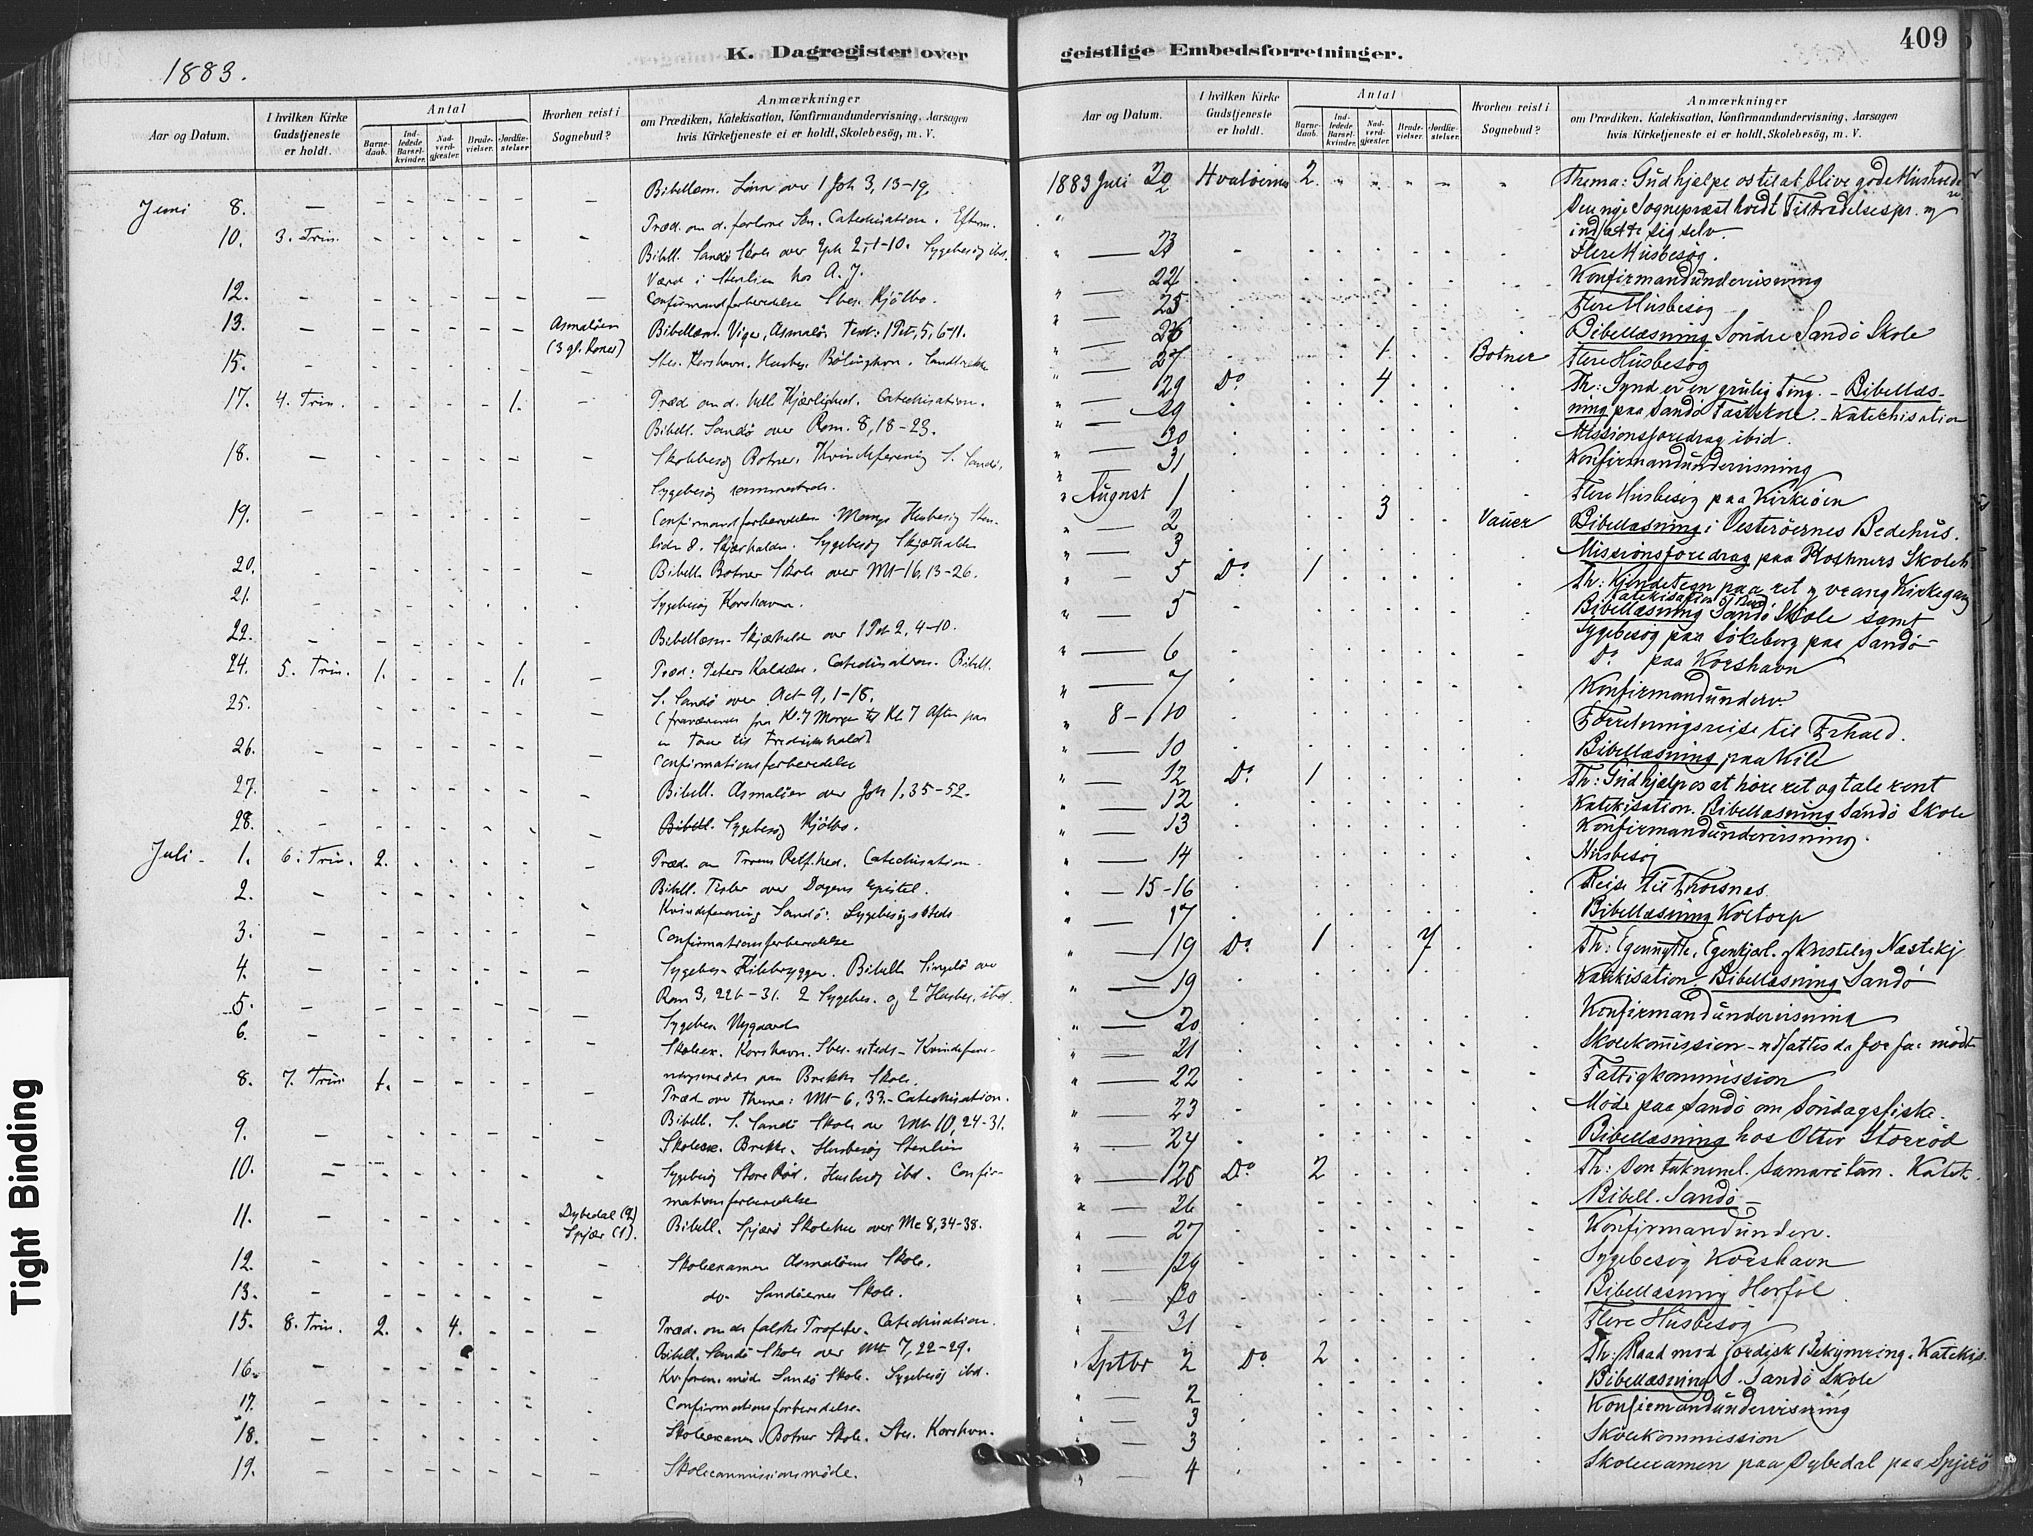 409
K. Dagregister over geistlige Embedsforretninger.
1883.
Aar og Datum.
I hvilken Kirke Gudstjeneste er holdt.
Antal
Barnedaab.
Indledede Barselkvinder.
Nadverdgjæster.
Brudevielser.
Jordfæstelser.
Hvorhen reist i Sognebud?
Anmærkninger
om Prædiken, Katekisation, Konfirmandundervisning, Aarsagen
hvis Kirketjeneste ei er holdt, Skolebesøg, m. V.
Juni 8. Bibellæsn. over 1 Joh 3, 13-19.
10. 3. Trin. Præd. om d. forlorne Søn. Catechisation. Efterm.
Bibell. Sandø Skole over Eph 2, 1-10. Sygebesøg ibd.
12. Confirmandforberedelse Sbes. Kjölbo.
13. Asmaløen (3 gl. Koner) Bibellæsn. Viger, Asmaløs Text: 1 Pet. 5, 6-11.
15. Sbes. Korshavn. Husbes.
17. 4. Trin. 1. Præd om d. Kjærlighed. Catechisation.
Bibell. Sandø over Rom. 8, 18-23.
18. Skolebesøg Botner. Kvindeforening S. Sandø.
Sygebesøg sammesteds.
19. Confirmandforberedelse. Mange Husbesøg
Skjærhalden. Sygebesøg Skjærhalden
20. Bibell. Botner Skole over Mt 16, 13-26.
21. Sygebesøg Korshavn.
22. Bibellæsn. Skjærhald. over 1 Pet 2, 4-10.
24. 5. Trin. 1. 1. Præd: Peters Kaldelse. Catechisation. Bibell.
S. Sandø over Act 9, 1-18.
25. (fraværende fra Kl. 7 Morgen til Kl 7 Aften paa
en Tour til Fredrikshald)
26. Confirmationsforberedelse
27. Bibell. Asmaløen over Joh 1, 35-52.
28. Bibell. Sygebesøg Kjölbo.
Juli 1. 6. Trin. 2. Præd. om Troens Retf.hed. Catechisation.
2. Bibell. Tisler over Dagens Epistel.
Kvindeforening Sandø. Sygebesøg
3. Confirmationsforberedelse
4. Sygebes. Kilebryggen. Bibell. Singelø over
Rom 3, 22b-31. 2 Sygebes. og 2 Husbes. ibd.
5. Sygebes. Nygaard
6. Skoleex. Korshavn. Sbes.
paa Brekke Skole.
8. 7. Trin 1. Præd over Thema: Mt 6, 33. - Catechisation.
Bibell. S. Sandø Skole over Mt 10, 24-31.
9. Skoleex. Brekke. Husbesøg Stenlien
10. Sygebesøg Store Rød. Husbesøg ibd. Confirmationsforberedelse
11. Dybedal (2) Spjær (1). Bibell. Spjærø Skolehus over Mc 8, 34-38.
12. Skoleexamen Asmaløens Skole.
13. do Sandøernes Skole.
15. 8. Trin. 2. 4. Præd. om de falske Profeter. Catechisation.
Bibell. Sandø Skole over Mt 7, 22-29.
16. Kv.foren. møde Sandø Skole. Sygebesøg ibd.
17. Confirmationsforberedelse.
18. Skoleexamen Botner Skole. Sbes. Korshavn.
19. Skolecommissionsmøde.
Aar og Datum.
I hvilken Kirke Gudstjeneste er holdt.
Antal
Barnedaab.
Indledede Barselkvinder.
Nadverdgjæster.
Brudevielser.
Jordfæstelser.
Hvorhen reist i Sognebud?
Anmærkninger
om Prædiken, Katekisation, Konfirmandundervisning, Aarsagen
hvis Kirketjeneste ei er holdt, Skolebesøg, m. V.
1883 Juli 22 Hvaløernes 2 Thema: Gud hjelpe os til at blive gode Husholdere.
Den nye Sognepræst holdt Tiltrædelsespr. og
indsatte sig selv.
23 Flere Husbesøg.
24 Konfirmandundervisning
25 Flere Husbesøg
26 Bibellæsning Søndre Sandø Skole
27 1 Botner Flere Husbesøg
29 Do 4 Th: Synd er en grulig Ting. - Bibellæsning
paa Sandø Fastskole. - Katekisation
29 Missionsforedrag ibid.
30 Konfirmandundervisning
31 Flere Husbesøg paa Kirkeøen
August 1
2 3 Vauer Bibellæsning i Vesterøernes Bedehus.
3 Missionsforedrag paa Skoleh.
5 Do 1 Th: Kjendetegn paa ret og vrang Kirkegang
Katekisation
5 Bibellæsning Sandø Skole samt
Sygebesøg paa Løkeberg paa Sandø
6 Do paa Korshavn
7 Konfirmandunderv.
8-10 Forretningsreise til Frhald.
10 Bibellæsning paa Kile
12 Do 1 Th: Gud hjælp os at høre ret og tale rent
12 Katekisation. Bibellæsning Sandø Skole
13 Konfirmandundervisning.
14 Husbesøg
15-16 Reise til Thorsnæs
17 Bibellæsning Koltorp
19 Do 1 7 Th: Egennytte, Egenkjærl. og kristelig Næstekj
19 Katekisation. Bibellæsning Sandø
20 Konfirmandundervisning
21 Skolekomission - udsattes da for faa mødte
22 Fattigkommission
23 Møde paa Sandø om Søndagsfiske.
24 Bibellæsning hos Otter Storrød
26 Do 2 Th: Den taknemmel. Samaritan. Katek.
26 Bibell. Sandø
27 Konfirmandunderv.
29 Sygebesøg Korshavn
30 Bibellæsning Herføl.
31 Flere Husbesøg
Sptbr 2 Do 2 Th: Raad mod jordisk Bekymring. Katekis.
2 Bibellæsning S. Sandø Skole
3 Konfirmandundervisning
3 Skolekommission
4 Skoleexamen paa Dybedal paa Spjerø
Tight Binding